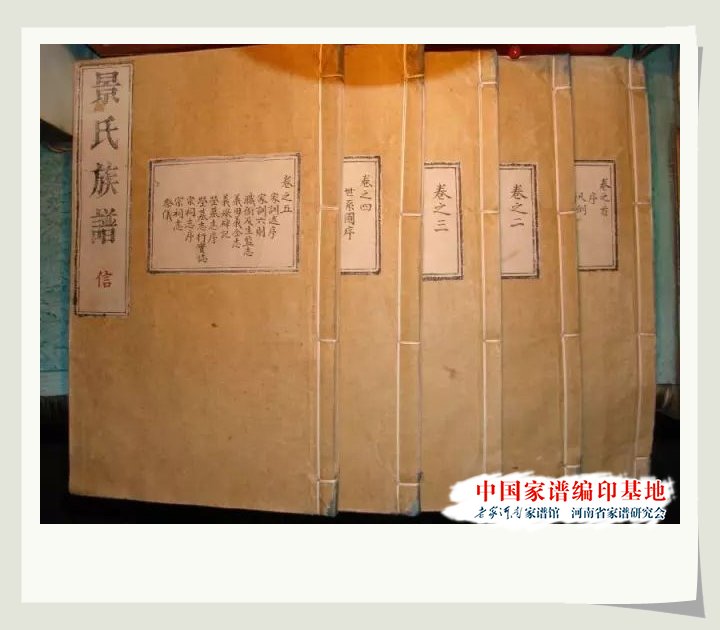 景氏族譜
信
卷之五
家訓遺序
家訓六則
職銜及生監志
義田義倉志
義塚碑記
塋墓志序
塋墓志行實誌
宗祠志序
宗祠志
祭儀
卷之四
世系圖序
卷之三
卷之二
卷之首
序
凡例
中国家谱编印基地
老家河南家谱馆 河南省家谱研究会